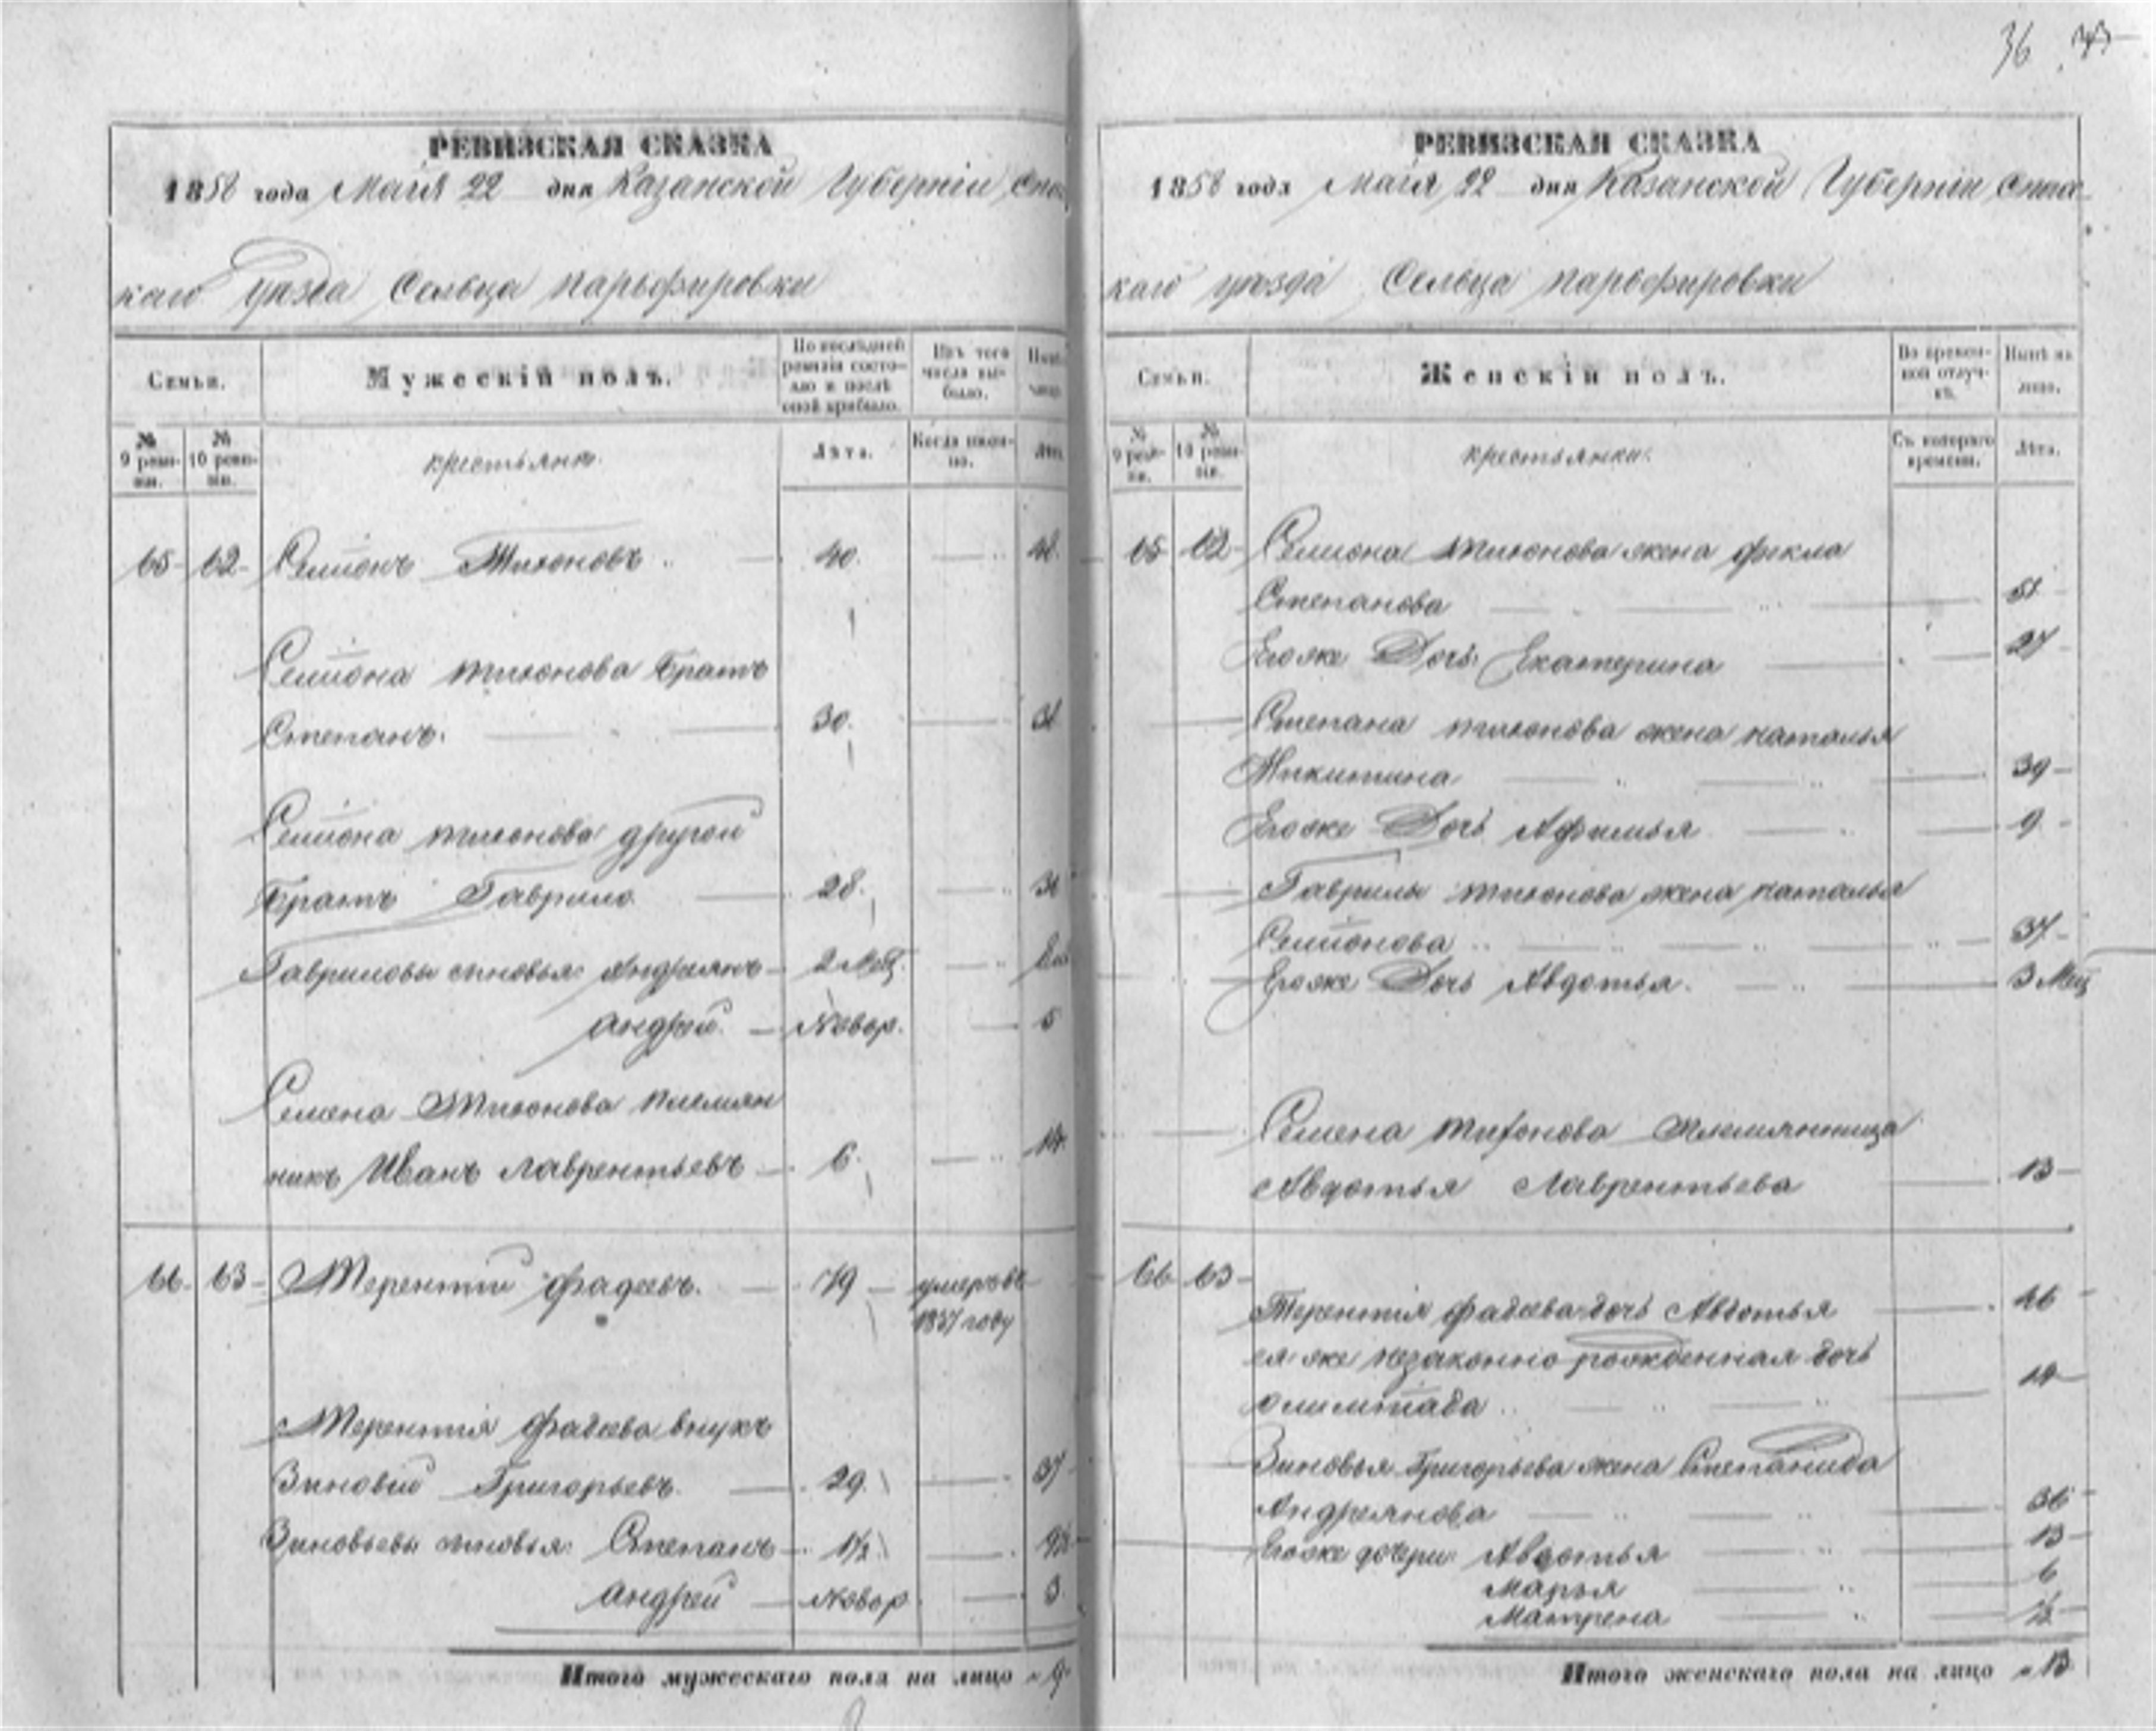 36
РЕВИЗСКАЯ СКАЗКА
1858 года Маія 22 дня Казанской Губерніи Спас
каго уѣзда Сельца Парьфировки
Семьи.
Мужескій полъ.
По последней ревизіи состояло и послѣ оной прибыло.
Изъ того числа выбыло.
№ 9 ревизіи.
№ 10 ревизіи.
крестьяне.
Лѣта.
Когда именно.
Лѣта
65 62 Семіонъ Тихоновъ 40. 48.
Семіона Тихонова Братъ
Степанъ. 30. 38
Семіона Тихонова другой
Братъ Гаврило 28.
Гавриловы сыновья Андреянъ 2 Мѣс.
Андрей. Новор. 5
Семена Тихонова племян
никъ Иванъ Лаврентьевъ 6. 14.
66. 63 Терентій Фадеевъ. 79 умеръ въ
1857 году
Терентія Фадѣева внукъ
Зиновій Григорьевъ. 29. 37
Зиновьевы сыновья: Степанъ 1½ 9½
Андрей Новор 3.
Итого мужескаго пола на лицо 9
РЕВИЗСКАЯ СКАЗКА
1858 года Маія 22 дня Казанской Губерніи Спас
каго уѣзда Сельца Парьфировки
Семьи.
Женскій полъ.
Во временной отлучкѣ.
Нынѣ на лицо.
№ 9 ревизіи.
№ 10 ревизіи.
крестьянки.
Съ котораго времени.
Лѣта.
65 62 Семіона Тихонова жена Фикла
Степанова 51
Его же Дочь Екатерина 27
Степана Тихонова жена Наталья
Никитина 39
Его же Дочь Афимья 9
Гаврилы Тихонова жена Наталья
Семіонова 37
Его же Дочь Авдотья. 3 Мѣс
Семена Тихонова Племянница
Авдотья Лаврентьева 13
66 63
Терентія Фадѣева дочь Авдотья 46
ея же незаконно рожденная дочь
Олимпіада 14
Зиновья Григорьева жена Степанида
Андреянова 36
Его же дочери: Авдотья 13
Марья 6
Матрена ½
Итого женскаго пола на лицо 13